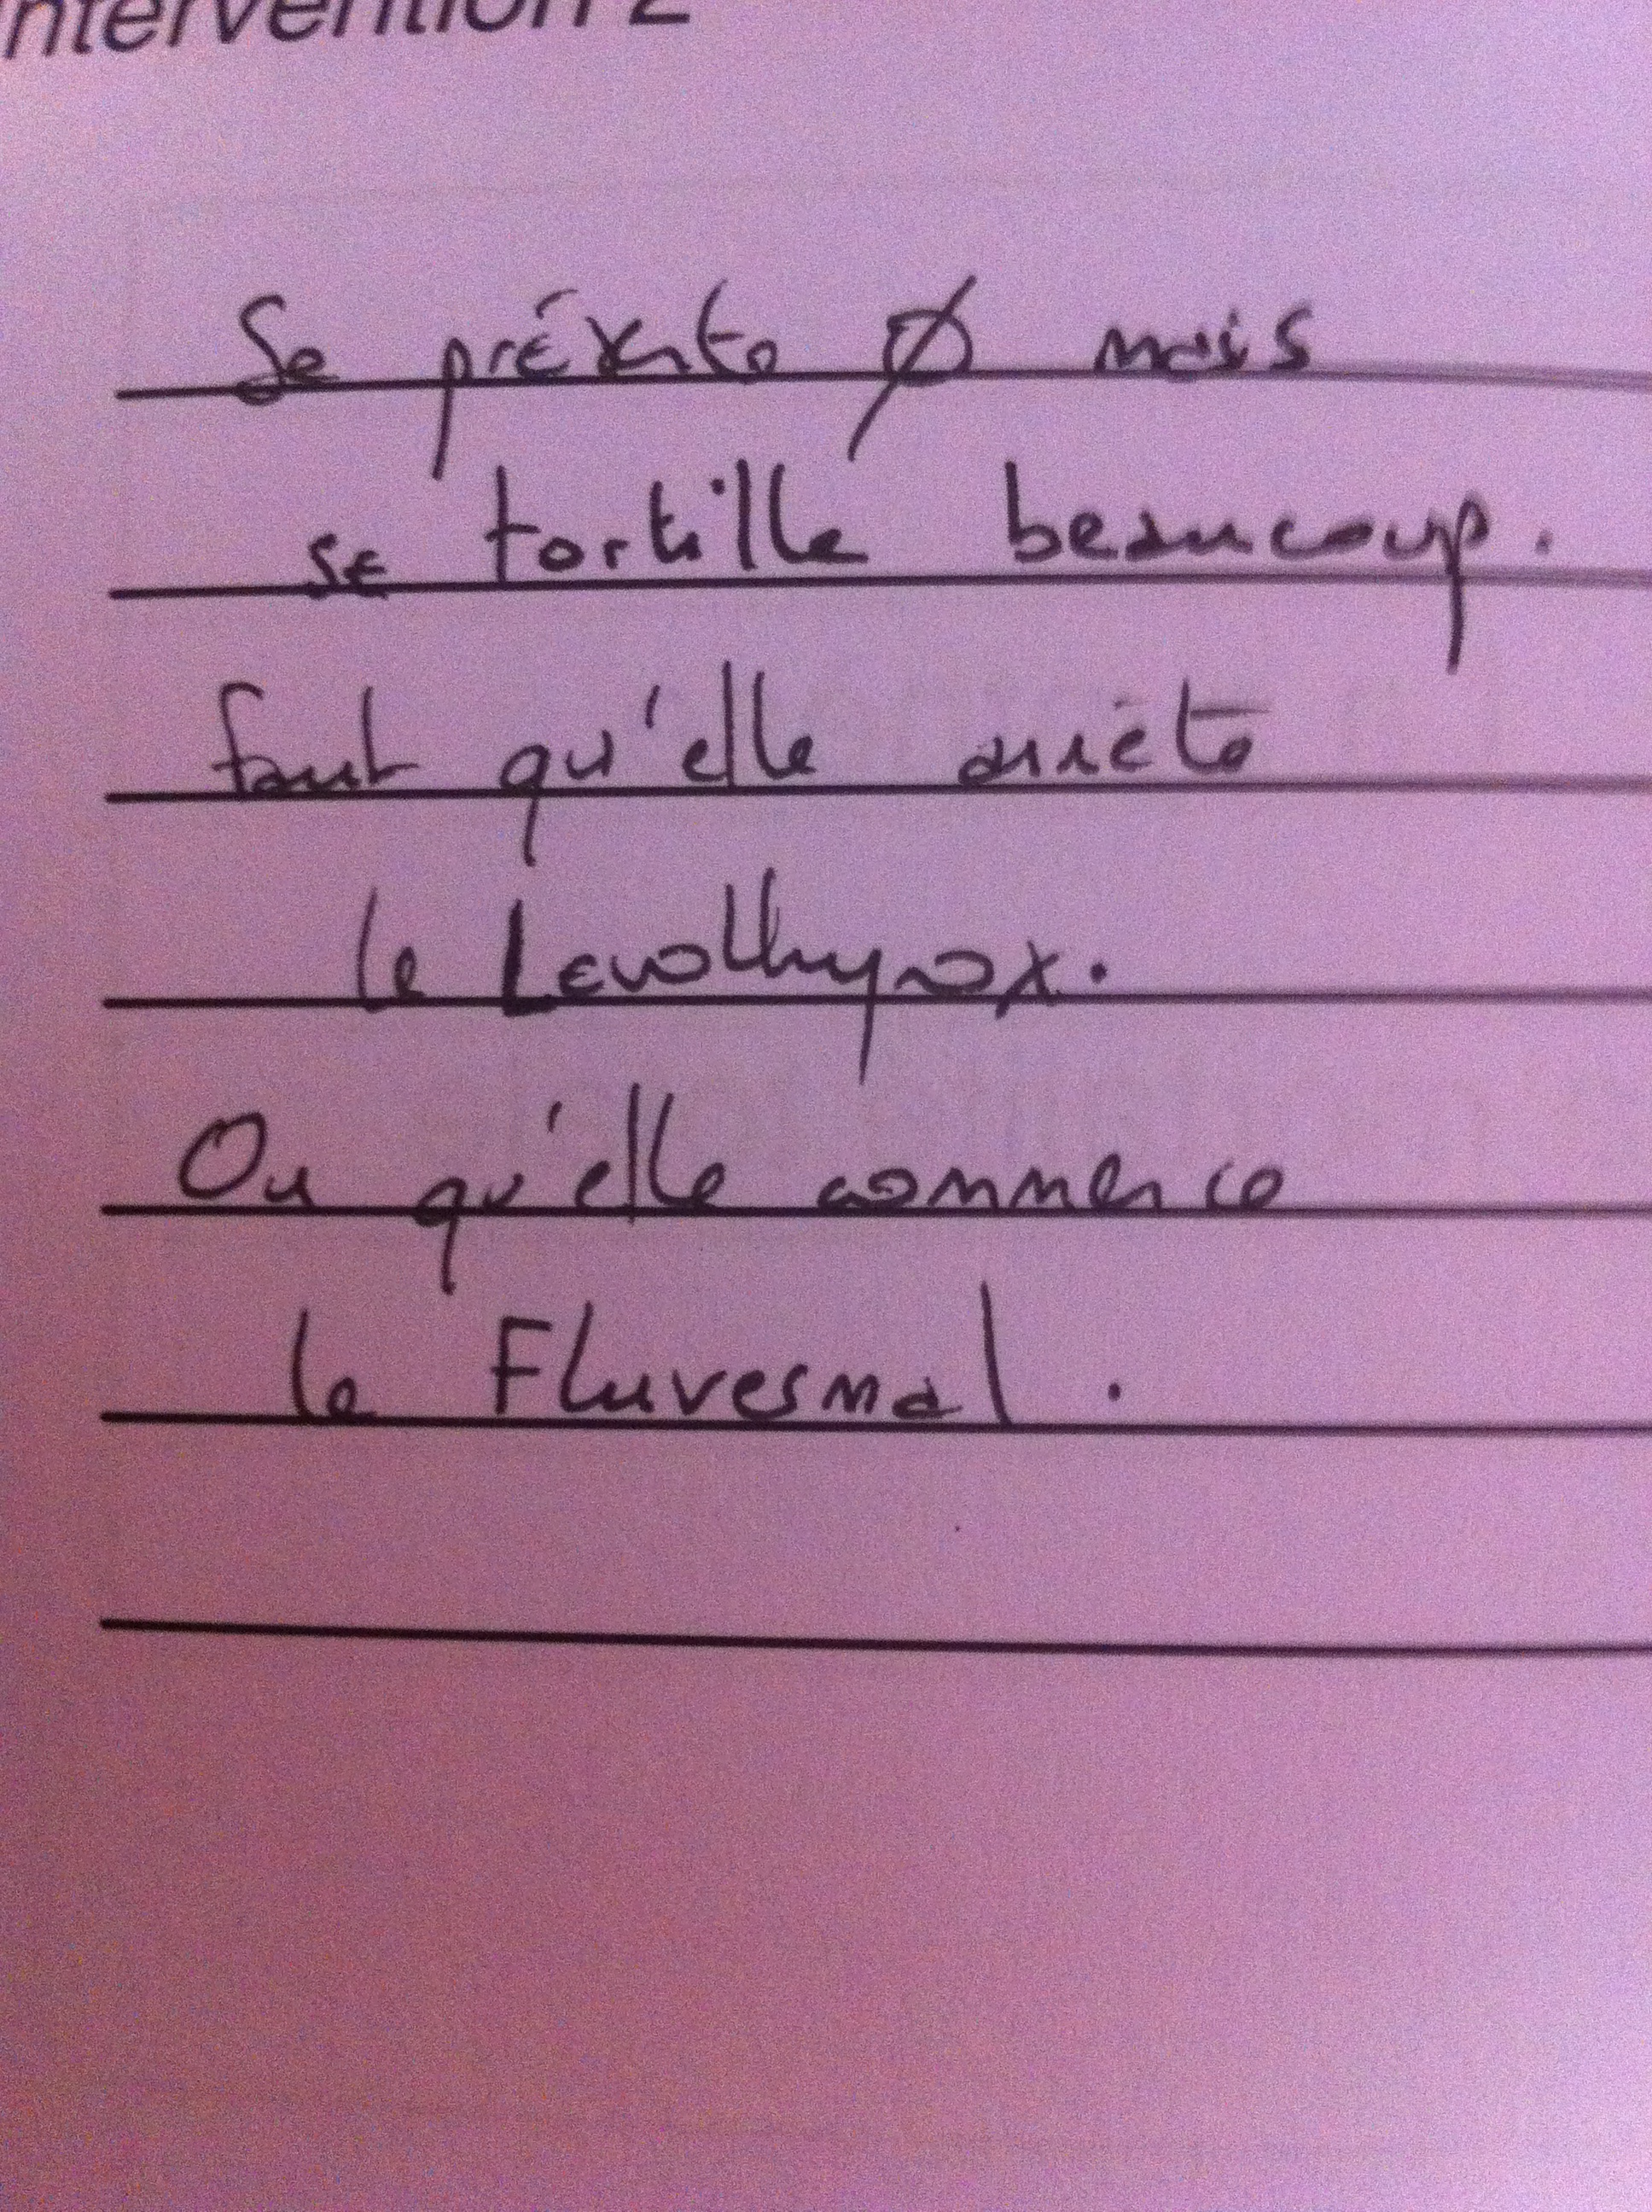 ntervention 2
Se présente Ø mais
se tortille beaucoup.
faut qu'elle arrête
le Levothyrox.
Ou qu'elle commence
le Fluvesmal.